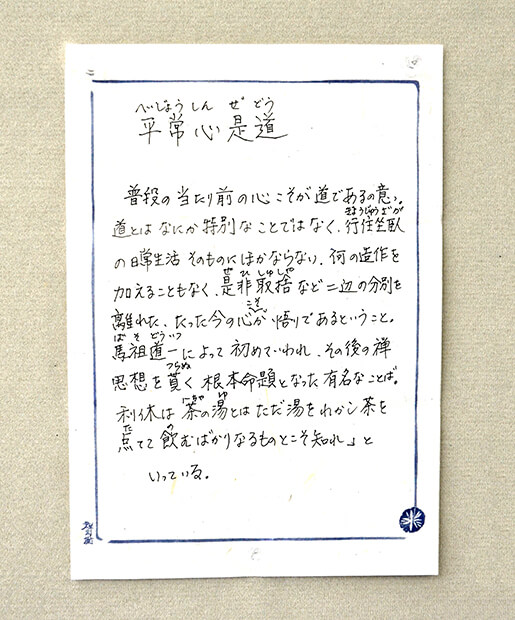 へいじょうしん ぜ どう
平常心是道
普段の当たり前の心こそが道であるの意。
道とはなにか特別なことではなく、行住坐臥
ぎょうじゅうざが
の日常生活そのものにほかならない、何の造作を
加えることもなく、是非取捨など二辺の分別を
ぜ ひ しゅしゃ
離れた、たった今の心こそが悟りであるということ。
ば そ どういつ
馬祖道一によって初めていわれ、その後の禅
つらぬ
思想を貫く根本命題となった有名なことば。
利休は「茶の湯とはただ湯をわかし茶を
ちゃ ゆ
た の
点てて飲むばかりなるものとこそ知れ」と
いっている。